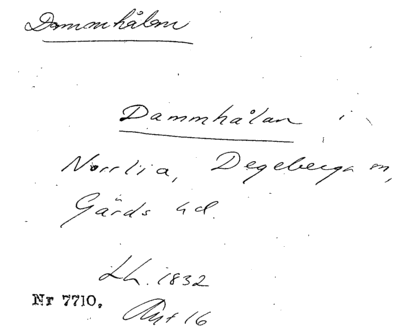 Dammhålan
Dammhålan i
Norrlia, Degeberga sn,
Gärds hd.
Lh. 1832
Nr 7710. Akt 16